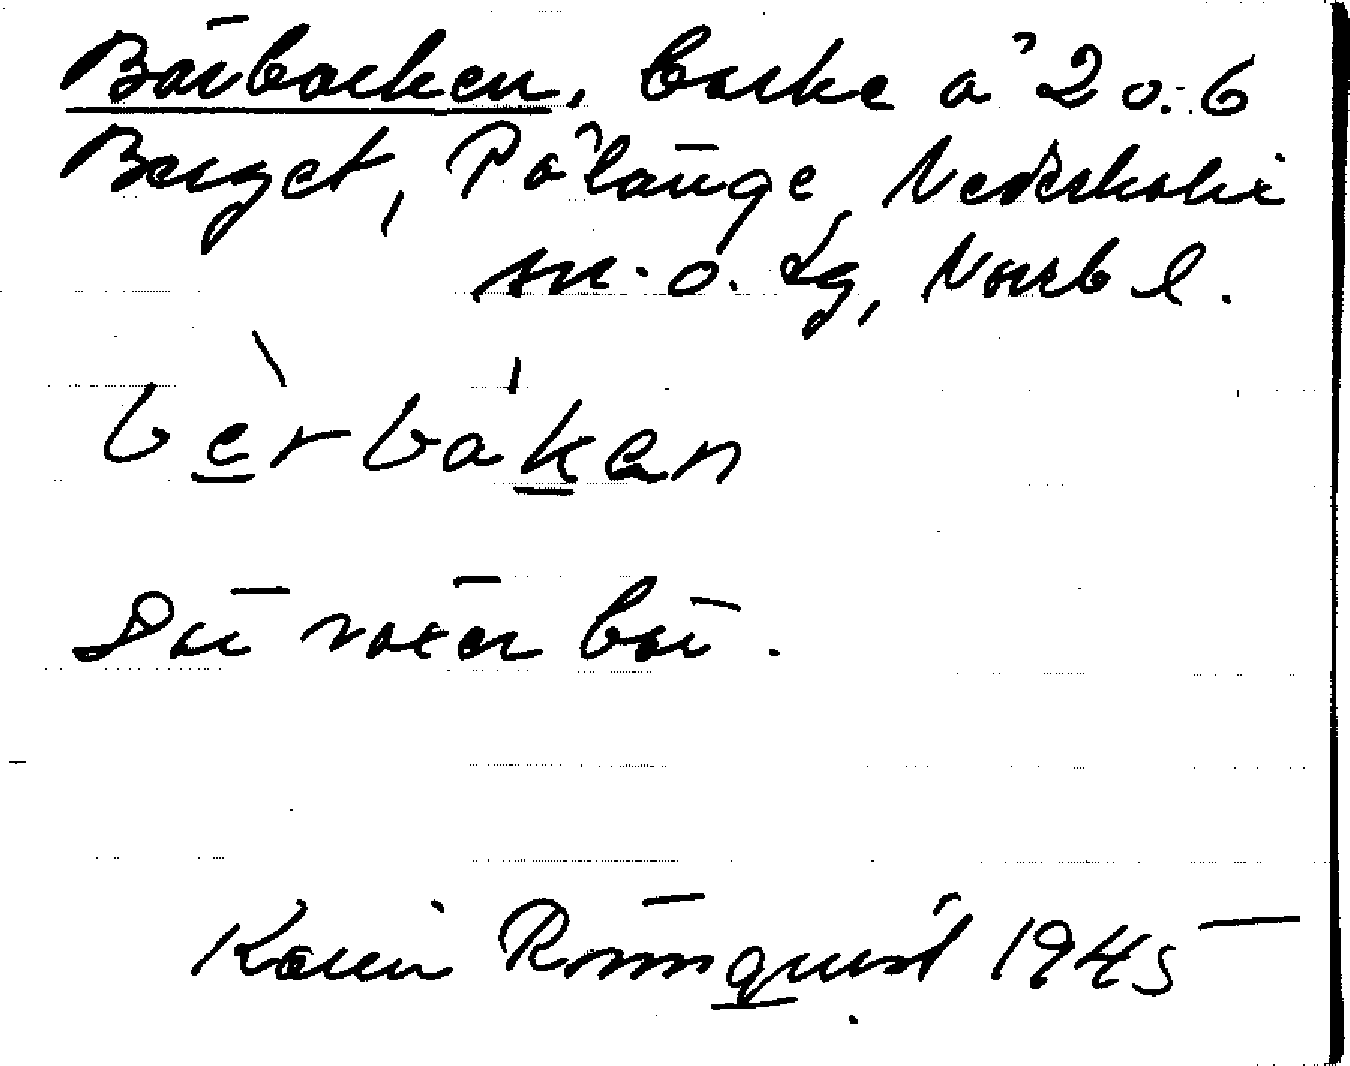 Bärbacken, backe å 20.6
Berget, Pålänge, Nederkalix
sn. o. lg, Norrb l.
bèrbákan
Där växer bär.
Karin Rönnquist 1945